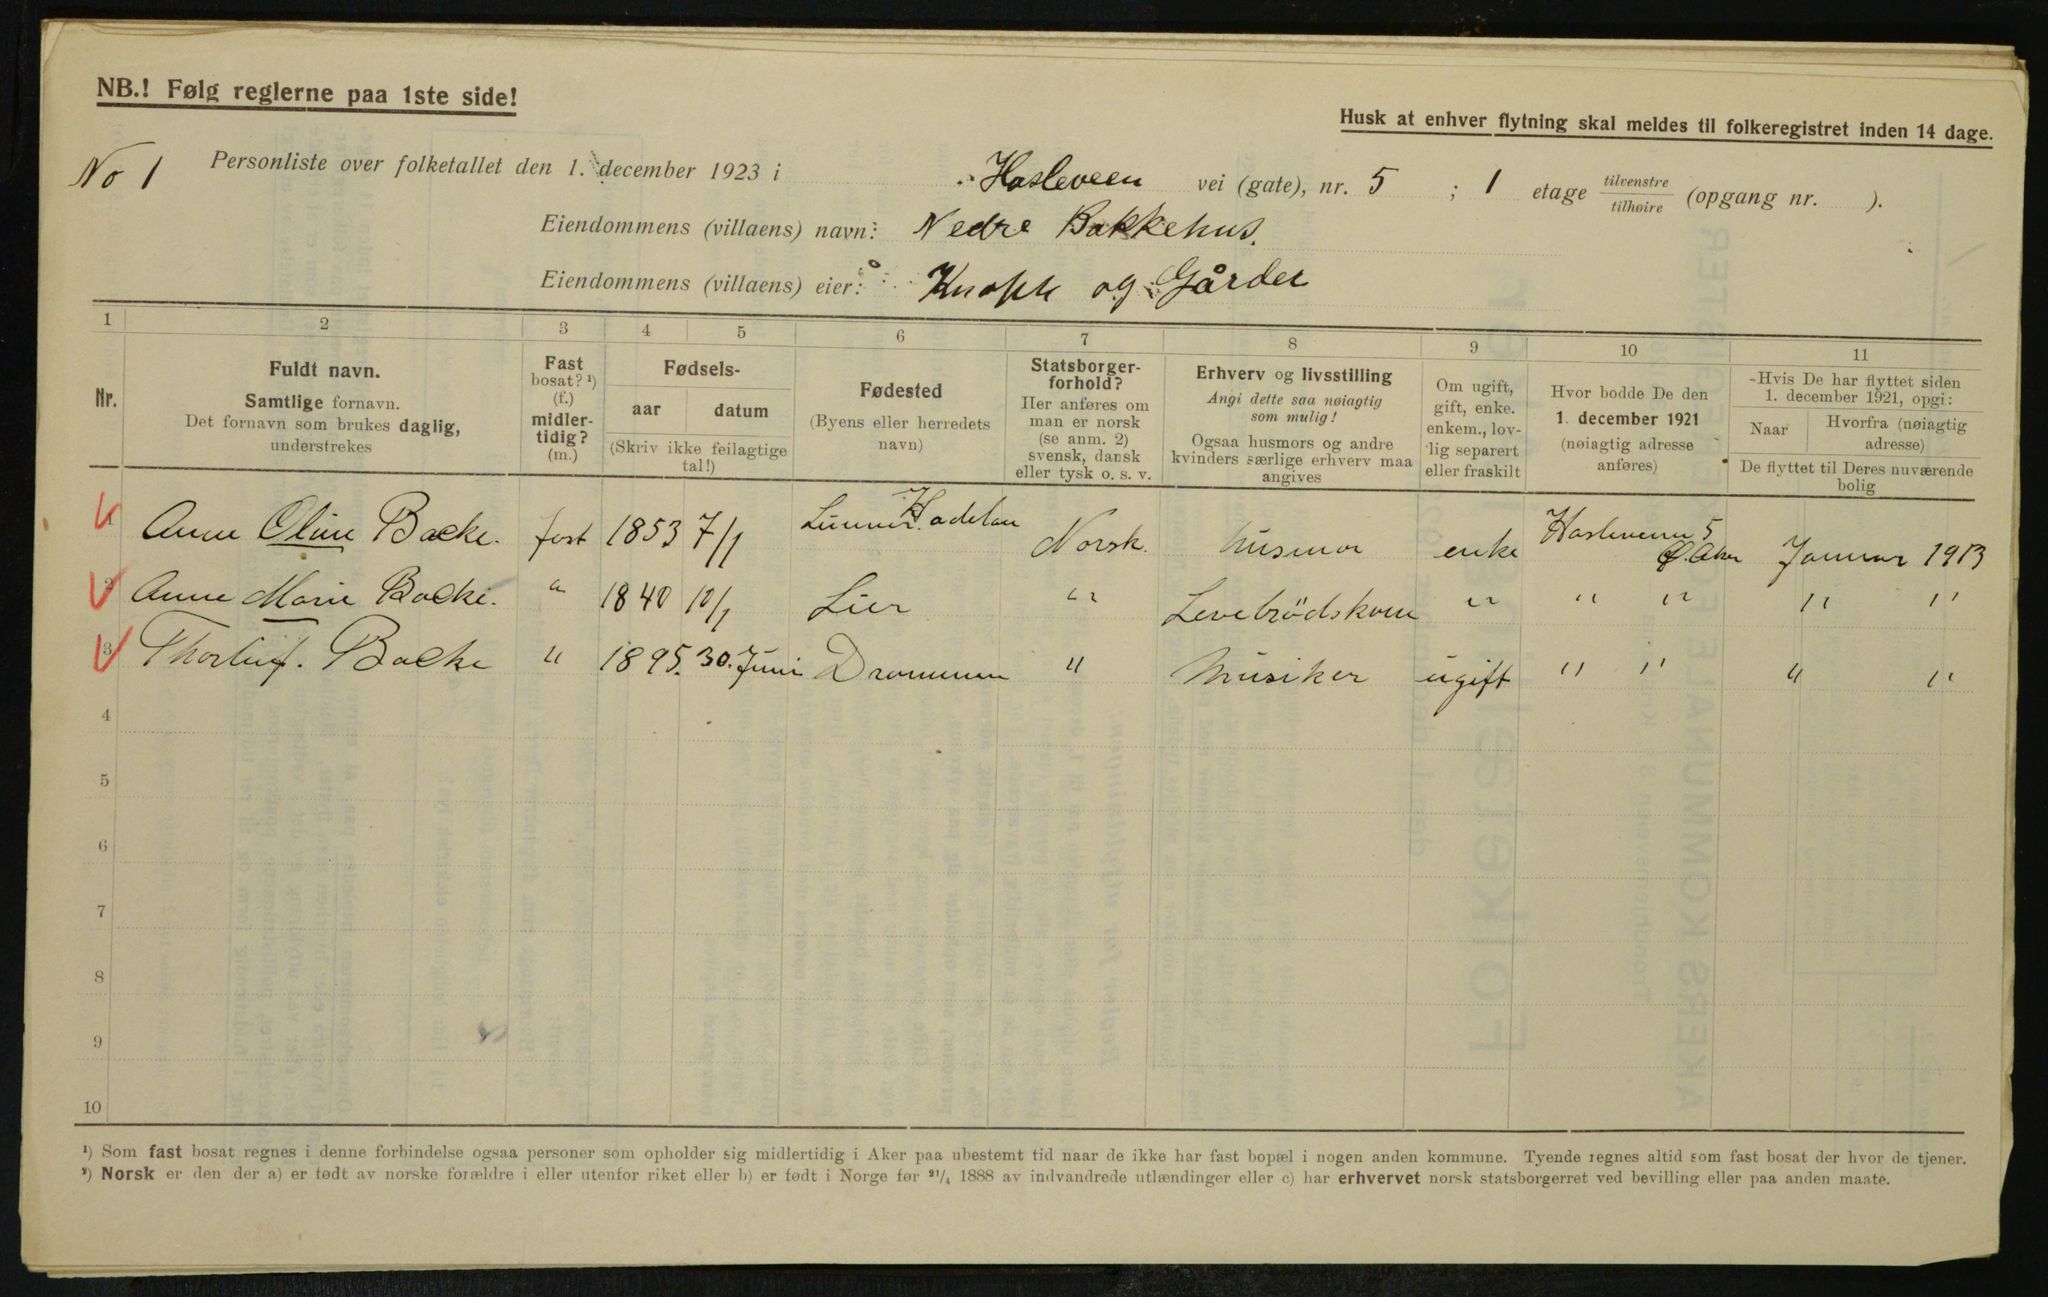 NB.! Følg reglerne paa 1ste side!
Husk at enhver flytning skal meldes til folkeregistret inden 14 dage.
No 1
Personliste over folketallet den 1. december 1923 i Hasleveen vei (gate), nr. 5 ; 1 etage tilvenstre / tilhøire (opgang nr. ).
Eiendommens (villaens) navn: Nedre Bakkehus.
Eiendommens (villaens) eier: og Gårder
1 2 3 4 5 6 7 8 9 10 11
Nr.
Fuldt navn.
Samtlige fornavn.
Det fornavn som brukes daglig,
understrekes
Fast
bosat? ¹)
(f.)
midler-
tidig?
(m.)
Fødsels-
aar datum
(Skriv ikke feilagtige
tal!)
Fødested
(Byens eller herredets
navn)
Statsborger-
forhold?
Her anføres om
man er norsk
(se anm. 2)
svensk, dansk
eller tysk o. s. v.
Erhverv og livsstilling
Angi dette saa nøiagtig
som mulig!
Ogsaa husmors og andre
kvinders særlige erhverv maa
angives
Om ugift,
gift, enke.
enkem., lov-
lig separert
eller fraskilt
Hvor bodde De den
1. december 1921
(nøiagtig adresse
anføres)
Hvis De har flyttet siden
1. december 1921, opgi:
Naar Hvorfra (nøiagtig
adresse)
De flyttet til Deres nuværende
bolig
1 Anne Oline Backe. fast 1853 7/1 Lunner. Hadelan Norsk. husmor enke Hasleveien 5 Ø. Aker Januar 1913
2 Anne Marie Backe. " 1840 10/1 Lier " Levebrödskone " " " " "
3 Thorleif. Backe " 1895. 30. Juni Drammen " Musiker ugift " " " "
4
5
6
7
8
9
10
¹) Som fast bosat regnes i denne forbindelse ogsaa personer som opholder sig midlertidig i Aker paa ubestemt tid naar de ikke har fast bopæl i nogen anden kommune. Tyende regnes altid som fast bosat der hvor de tjener.
²) Norsk er den der a) er født av norske forældre i eller utenfor riket eller b) er født i Norge før ²¹/₄ 1888 av indvandrede utlændinger eller c) har erhvervet norsk statsborgerret ved bevilling eller paa anden maate.